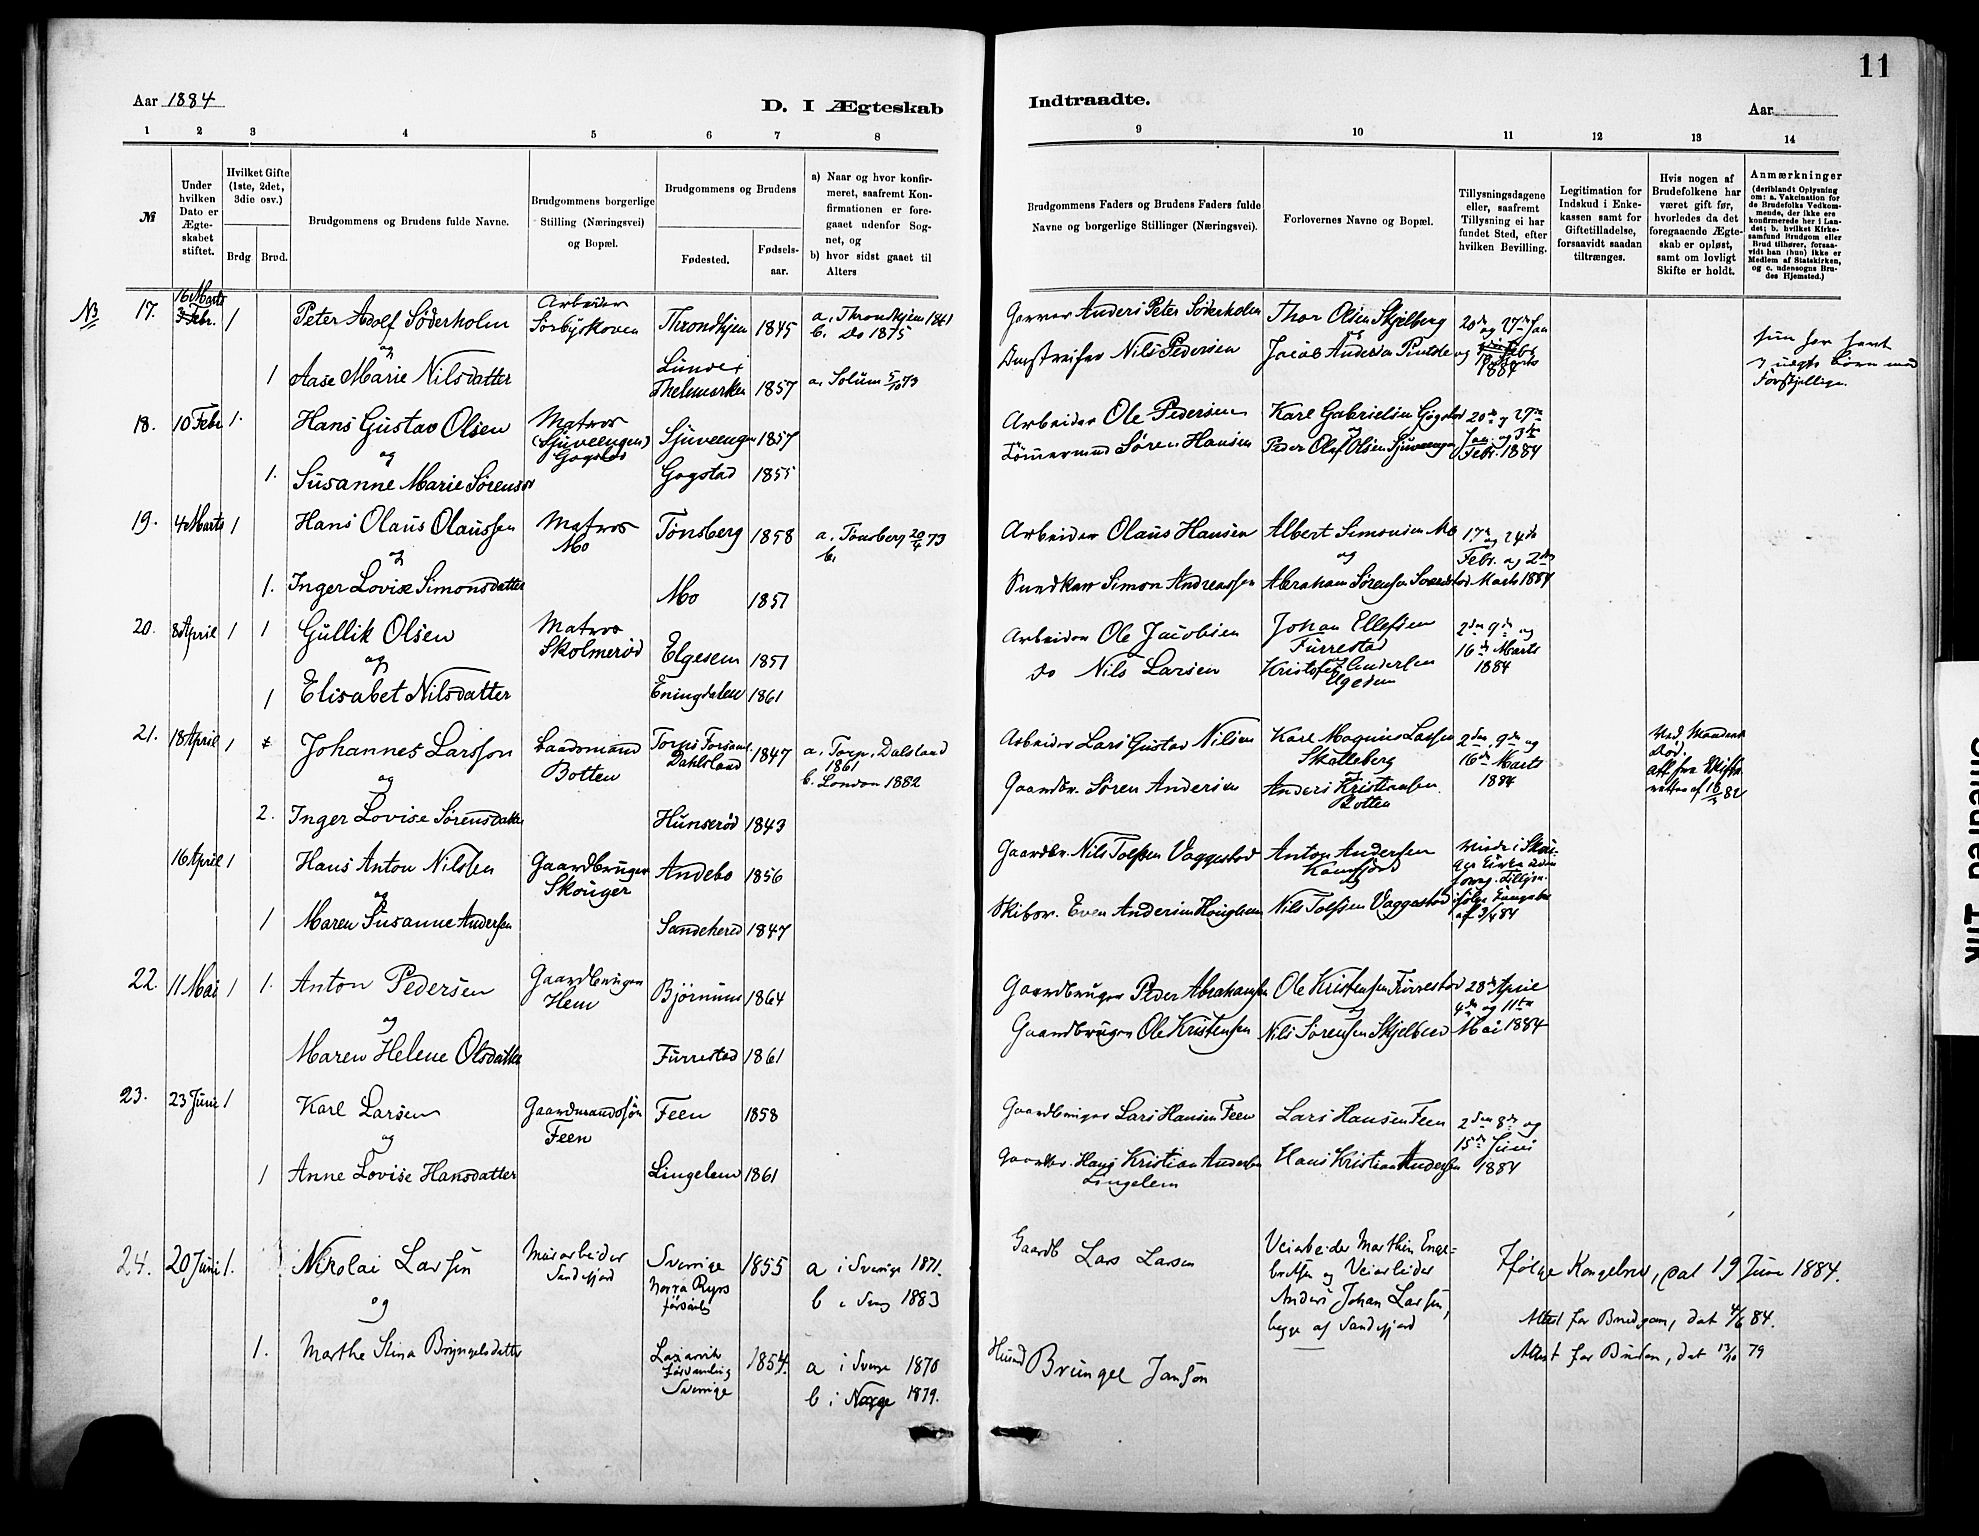 11
Aar 1884
D. I Ægteskab
Indtraadte.
Aar
1 2 3 4 5 6 7 8
9 10 11 12 13 14
№
Under hvilken Dato er Ægteskabet stiftet.
Hvilket Gifte (1ste, 2det, 3die osv.)
Brdg
Brud.
Brudgommens og Brudens fulde Navne.
Brudgommens borgerlige Stilling (Næringsvei) og Bopæl.
Brudgommens og Brudens
Fødested.
Fødselsaar.
a) Naar og hvor konfirmeret, saafremt Konfirmationen er foregaaet udenfor Sognet, og
b) hvor sidst gaaet til Alters
Brudgommens Faders og Brudens Faders fulde Navne og borgerlige Stillinger (Næringsvei).
Forlovernes Navne og Bopæl.
Tillysningsdagene eller, saafremt Tillysning ei har fundet Sted, efter hvilken Bevilling.
Legitimation for Indskud i Enkekassen samt for Giftetilladelse, forsaavidt saadan tiltrænges.
Hvis nogen af Brudefolkene har været gift før, hvorledes da det foregaaende Ægteskab er opløst, samt om lovligt Skifte er holdt.
Anmærkninger
(deriblandt Oplysning om: a. Vakcination for de Brudefolks Vedkommende, der ikke ere konfirmerede her i Landet; b. hvilket Kirkesamfund Brudgom eller Brud tilhører, forsaavidt han (hun) ikke er Medlem af Statskirken, og c. udensogns Brudes Hjemsted.)
NB
17. 16 Marts 3 Febr. 1 Peter Adolf Søderholm Arbeider Sørbyskoven Throndhjem 1845 a. Throndhjem 1861 b. Do 1875
og
1 Aase Marie Nilsdatter Lunde i Thelemarken 1857 a. Solum 5/10 73
Anders Peter Søderholm Thor Olsen Skjelberg 20de og 27de Jan
Nils Pedersen Jacob Andersen 1884
18. 10 Febr 1. Hans Gustav Olsen Matros (Sjuveengen) Gogstad Sjuveengen 1857
og
1. Susanne Marie Sørensdr Gogstad 1855
Arbeider Ole Pedersen Karl Gabrielsen Gogstad 20de og 27de
Tømmermand Søren Hansen og Peder Olaf Olsen Sjuveengen Jan. og 3die Febr. 1884
19. 4 Marts 1 Hans Olaus Olaussen Matros Mo Tønsberg 1858 a. Tønsberg 20/4 73 b.
og
1. Inger Lovise Simonsdatter Mo 1851
Arbeider Olaus Hansen Albert Simonsen Mo 17de og 24de
og
Simon Andreassen Abraham Sørensen Febr. og 2den Marts 1884
20. 8 April 1 1 Gullik Olsen Matros Skolmerød Elgesem 1851
og
1 Elisabet Nilsdatter Eningdalen 1861
Arbeider Ole Jacobsen Johan Ellefsen Furrestad 2den 9de og
do Nils Larsen Kristofer Andersen Elgesem 16de Marts 1884
21. 18 April 1 Johannes Larsson Baadsmand Botten Torps Dahlsland 1847 a. Torp, Dalsland 1861 b. London 1882
og
2. Inger Lovise Sørensdatter Hunserød 1843
Arbeider Lars Gustav Nilsen Karl Magnus Larsen Skalleberg 2den, 9de og 16de Marts 1884
Gaardbr. Søren Andersen Anders Kristiansen Botten
Ved Mandens Død. Att. fra Skifteretten af 82
16 April 1 Hans Anton Nilssen Gaardbruger Skouger Andebo 1856
og
1 Maren Susanne Andersen Sandeherred 1847
Gaardbr. Nils Tolfsen Vaggestad Anton Andersen
Skibsr. Even Andersen Nils Tolfsen Vaggestad af 3/4 84
22. 11 Mai 1 1. Anton Pedersen Gaardbruger Hem Bjørnum 1864
og
Maren Helene Olsdatter Furrestad 1861
Gaardbruger Peder Abrahamsen Ole Kristensen Furrestad 28de April
Gaardbruger Ole Kristensen og Nils Sørensen Skjelbred 4de og 11te Mai 1884
23. 23 Juni 1 Karl Larsen Gaardmandssøn Feen Feen 1858
og
1 Anne Lovise Hansdatter Lingelem 1861
Gaardbruger Lars Hansen Feen Lars Hansen Feen 2den 8de og
Gaardbr. Hans Kristian Andersen Lingelem Hans Kristian Andersen 15de Juni 1884
24. 20 Juni 1. Nikolai Larsen Murarbeider Sandefjord Sverrige Norra Ryrs församl 1855 a i Sverige 1871. b i 1883
og
1. Marthe Stina Bryngelsdatter församling Sverrige 1854. a i Sverge 1870 b i Norge 1879.
Gaardb Lars Larsen Veiarbeider Marthin Engebretsen og Veiarbeider Anders Johan Larsen, begge af Sandefjord
Brüngel Janson
Ifølge Kongebrev, dat 19 Juni 1884.
Attest for Brudgom, dat 4/6 84.
Attest for Bruden, dat 13/10 79